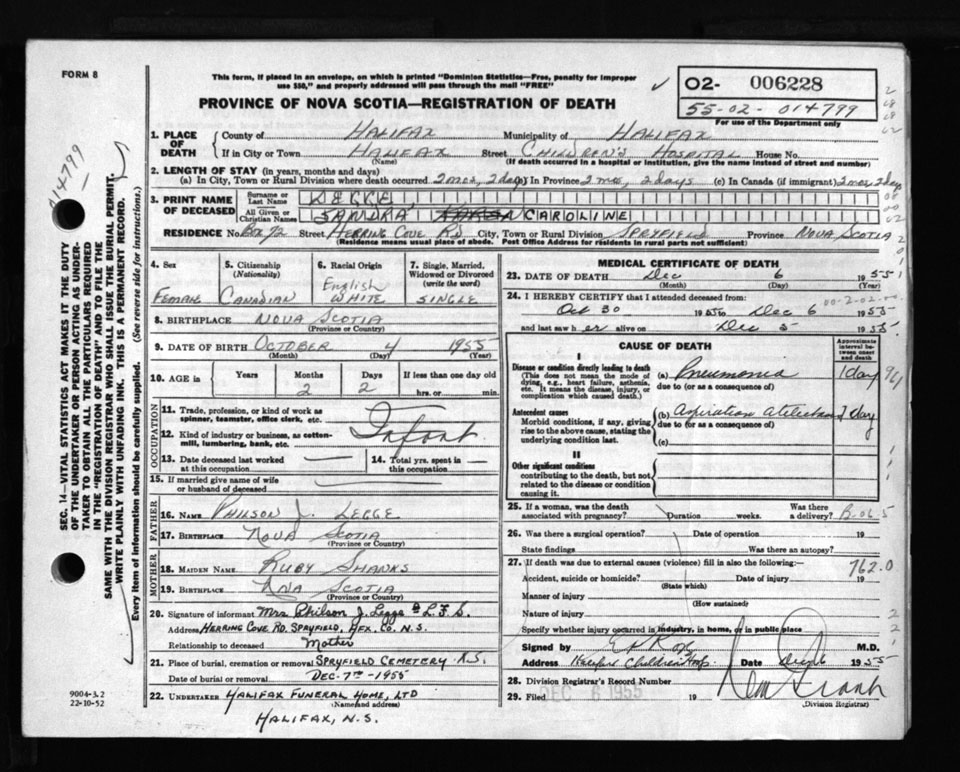 FORM 8
This form, if placed in an envelope, on which is printed "Dominion Statistics—Free, penalty for improper
use $50," and properly addressed will pass through the mail "FREE"
✓
02- 006228
55-02-014799
For use of the Department only
PROVINCE OF NOVA SCOTIA—REGISTRATION OF DEATH
14799
SEC. 14—VITAL STATISTICS ACT MAKES IT THE DUTY
OF THE UNDERTAKER OR PERSON ACTING AS UNDER-
TAKER TO OBTAIN ALL THE PARTICULARS REQUIRED
IN THE "REGISTRATION OF DEATH" AND TO FILE THE
SAME WITH THE DIVISION REGISTRAR WHO SHALL ISSUE THE BURIAL PERMIT.
WRITE PLAINLY WITH UNFADING INK. THIS IS A PERMANENT RECORD.
Every item of information should be carefully supplied. (See reverse side for instructions.)
1. PLACE OF DEATH
County of HALIFAX Municipality of HALIFAX
If in City or Town HALIFAX Street CHILDREN'S HOSPITAL House No.
(Name) (If death occurred in a hospital or institution, give the name instead of street and number)
2. LENGTH OF STAY (in years, months and days)
(a) In City, Town or Rural Division where death occurred 2 mos, 2 days (b) In Province 2 mo, 2 days (c) In Canada (if immigrant) 2 mos 2 days
3. PRINT NAME OF DECEASED
Surname or Last Name LEGGE
All Given or Christian Names SANDRA CAROLINE
RESIDENCE No. Box 72 Street HERRING COVE RD City, Town or Rural Division SPRYFIELD Province NOVA SCOTIA
(Residence means usual place of abode. Post Office Address for residents in rural parts not sufficient)
4. Sex
FEMALE
5. Citizenship
(Nationality)
CANADIAN
6. Racial Origin
English
WHITE
7. Single, Married,
Widowed or Divorced
(write the word)
SINGLE
8. BIRTHPLACE NOVA SCOTIA
(Province or Country)
9. DATE OF BIRTH OCTOBER 4 1955
(Month) (Day) (Year)
10. AGE in Years Months Days If less than one day old
2 2 hrs. or min.
OCCUPATION
11. Trade, profession, or kind of work as
spinner, teamster, office clerk, etc.
12. Kind of industry or business, as cotten-
mill, lumbering, bank, etc.
Infant
13. Date deceased last worked
at this occupation —
14. Total yrs. spent in
this occupation —
15. If married give name of wife
or husband of deceased —
FATHER
16. Name PHILSON J. LEGGE
17. Birthplace NOVA SCOTIA
(Province or Country)
MOTHER
18. Maiden Name RUBY SHANKS
19. Birthplace NOVA SCOTIA
(Province or Country)
20. Signature of informant Mrs Philson J. Legge L.F.S.
Address HERRING COVE RD. SPRYFIELD, HFX. CO. N.S.
Relationship to deceased Mother
21. Place of burial, cremation or removal SPRYFIELD CEMETERY N.S.
Date of burial or removal DEC. 7TH - 1955
22. UNDERTAKER HALIFAX FUNERAL HOME, LTD
(Name and address)
HALIFAX, N.S.
9004-3.2
22-10-52
MEDICAL CERTIFICATE OF DEATH
23. DATE OF DEATH Dec 6 1955
(Month) (Day) (Year)
24. I HEREBY CERTIFY that I attended deceased from:
00-2-02-00
Oct 30 1955 to Dec 6 1955
and last saw h er alive on Dec 5 1955
CAUSE OF DEATH
Approximate
interval be-
tween onset
and death
I
Disease or condition directly leading to death
(This does not mean the mode of
dying, e.g., heart failure, asthenia,
etc. It means the disease, injury, or
complication which caused death.)
(a) Pneumonia 1 day
due to (or as a consequence of)
Antecedent causes
Morbid conditions, if any, giving
rise to the above cause, stating the
underlying condition last.
(b) Aspiration Atelectasis 2 day
due to (or as a consequence of)
(c)
II
Other significant conditions
contributing to the death, but not
related to the disease or condition
causing it.
25. If a woman, was the death
associated with pregnancy? Duration weeks. Was there
a delivery?
26. Was there a surgical operation? Date of operation 19
State findings Was there an autopsy?
27. If death was due to external causes (violence) fill in also the following:
762.0
Accident, suicide or homicide? Date of injury 19
(State which)
Manner of injury
(How sustained)
Nature of injury
Specify whether injury occurred in industry, in home, or in public place
Signed by M.D.
Address Halifax Children Hosp Date Dec 6 1955
28. Division Registrar's Record Number
29. Filed DEC 6 1955 19
(Division Registrar)